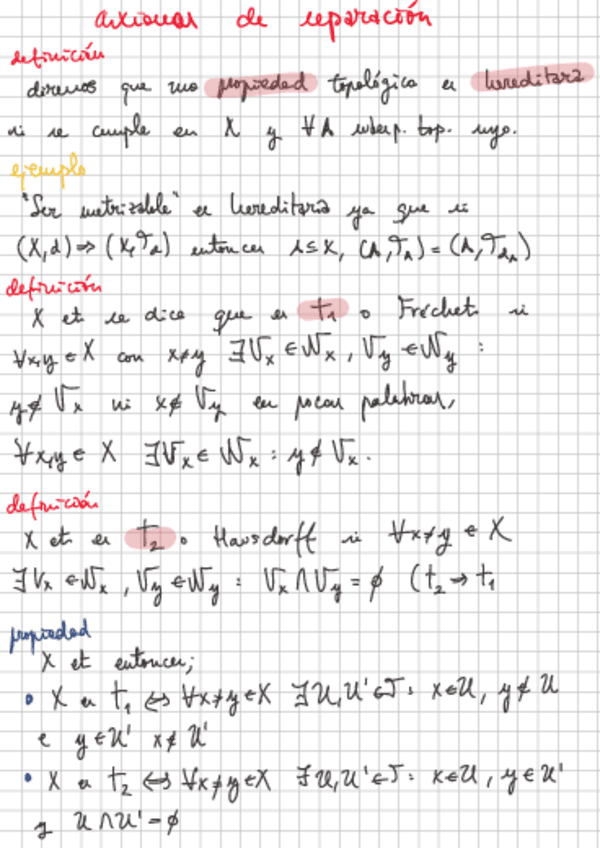 axiomas de separación
definición
diremos que una propiedad topológica es hereditaria
si se cumple en X y ∀A subesp. top. suyo.
ejemplo
"Ser metrizable" es hereditaria ya que si
(X,d) ⇒ (X,T_d) entonces A ⊆ X, (A,T_A) = (A,T_{d_A})
definición
X et se dice que es t₁ o Fréchet si
∀x,y ∈ X con x≠y ∃V_x ∈ N_x, V_y ∈ N_y :
y ∉ V_x ni x ∉ V_y en pocas palabras,
∀x,y ∈ X ∃V_x ∈ N_x : y ∉ V_x.
definición
X et es t₂ o Hausdorff si ∀x≠y ∈ X
∃V_x ∈ N_x, V_y ∈ N_y : V_x ∩ V_y = ∅ (t₂ ⇒ t₁
propiedad
X et entonces;
• X es t₁ ⇔ ∀x≠y ∈ X ∃U,U' ∈ T : x ∈ U, y ∉ U
e y ∈ U' x ∉ U'
• X es t₂ ⇔ ∀x≠y ∈ X ∃U,U' ∈ T : x ∈ U, y ∈ U'
y U ∩ U' = ∅